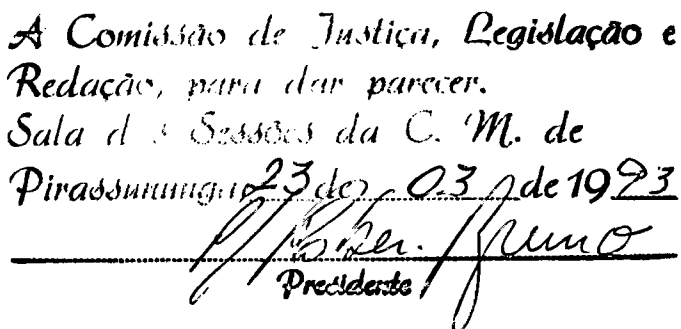 A Comissão de Justiça, Legislação e
Redação, para dar parecer.
Sala das Sessões da C. M. de
Pirassununga, 23 de 03 de 1993
Bruno
Presidente